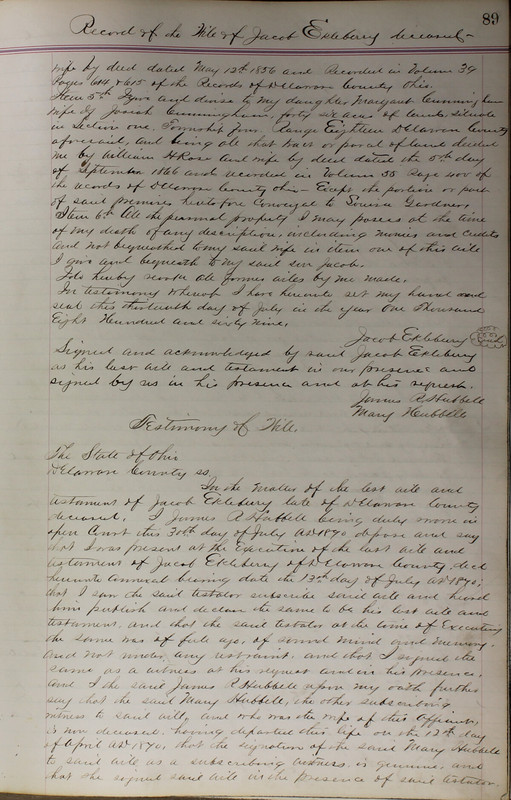 89
Record of the Will of Jacob Ekleberry deceased
wife by deed dated May 12th 1856 and Recorded in Volume 39
Pages 614 & 615 of the Records of Delaware County Ohio.
Item 5th I give and devise to my daughter Margaret Cunningham
wife of Josiah Cunningham, forty six acres of land situate
in Section one, Township four, Range Eighteen Delaware County
aforesaid, and being all that tract or parcel of land deeded
me by William H Rose and wife by deed dated the 5th day
of September 1866 and recorded in Volume 55 Page of
the records of Delaware County Ohio Except the portion or part
of said premises heretofore Conveyed to Louisa Gardner
Item 6th All the personal property I may posess at the time
of my death of any description, including monies and Credits
and not bequeathed to my said wife in item one of this will
I give and bequeath to my said son Jacob.
I do hereby revoke all former wills by me made.
In testimony whereof I have hereunto set my hand and
seal this thirteenth day of July in the year One Thousand
Eight Hundred and sixty nine.
Jacob Ekleberry Seal
Signed and acknowledged by said Jacob Ekleberry
as his last will and testament in our presence and
signed by us in his presence and at his request.
James R Hubbell
Mary Hubbell
Testimony of Will.
The State of Ohio
Delaware County ss.
In the Matter of the last will and
testament of Jacob Ekleberry late of Delaware County
deceased. I James R Hubbell being duly sworn in
open Court this 30th day of July AD 1870 depose and say
that I was present at the Execution of the last will and
testament of Jacob Ekleberry of Delaware County, decd
hereunto annexed bearing date the 13th day of July AD 1870;
that I saw the said testator subscribe said will and heard
him publish and declare the same to be his last will and
testament, and that the said testator at the time of Executing
the same was of full age, of sound mind and memory,
and not under any restraint. and that I signed the
same as a witness at his request and in his presence,
And I the said James R Hubbell upon my oath further
say that the said Mary Hubbell, the other subscribing
witness to said will, and who was the wife of this affiant,
is now deceased. having departed this life on the day
of April AD 1870, that the signature of the said Mary Hubbell
to said will as a subscribing witness is genuine, and
that she signed said will in the presence of said testator.